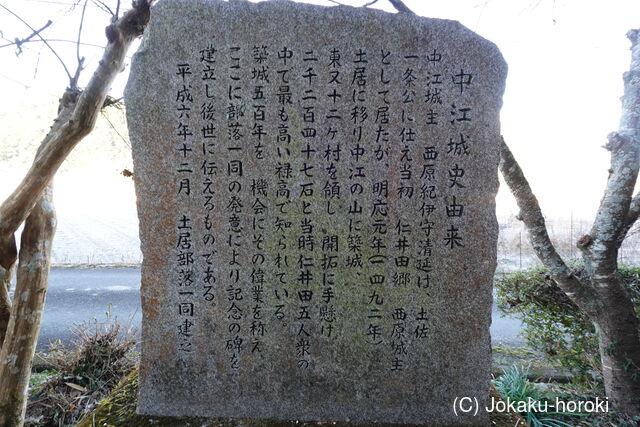 中江城史由来
中江城主 西原紀伊守清延は 土佐
一条公に仕え当初 仁井田郷 西原城主
として居たが 明応元年(一四九二年)
土居に移り中江の山に築城、
東又十二ヶ村を領し 開拓に手懸け
二千二百四十七石と当時仁井田五人衆の
中で最も高い禄高で知られている。
築城五百年を 機会にその偉業を称え
ここに部落一同の発意により記念の碑を
建立し後世に伝えるものである。
平成六年十二月 土居部落一同建之
(C) Jokaku-horoki